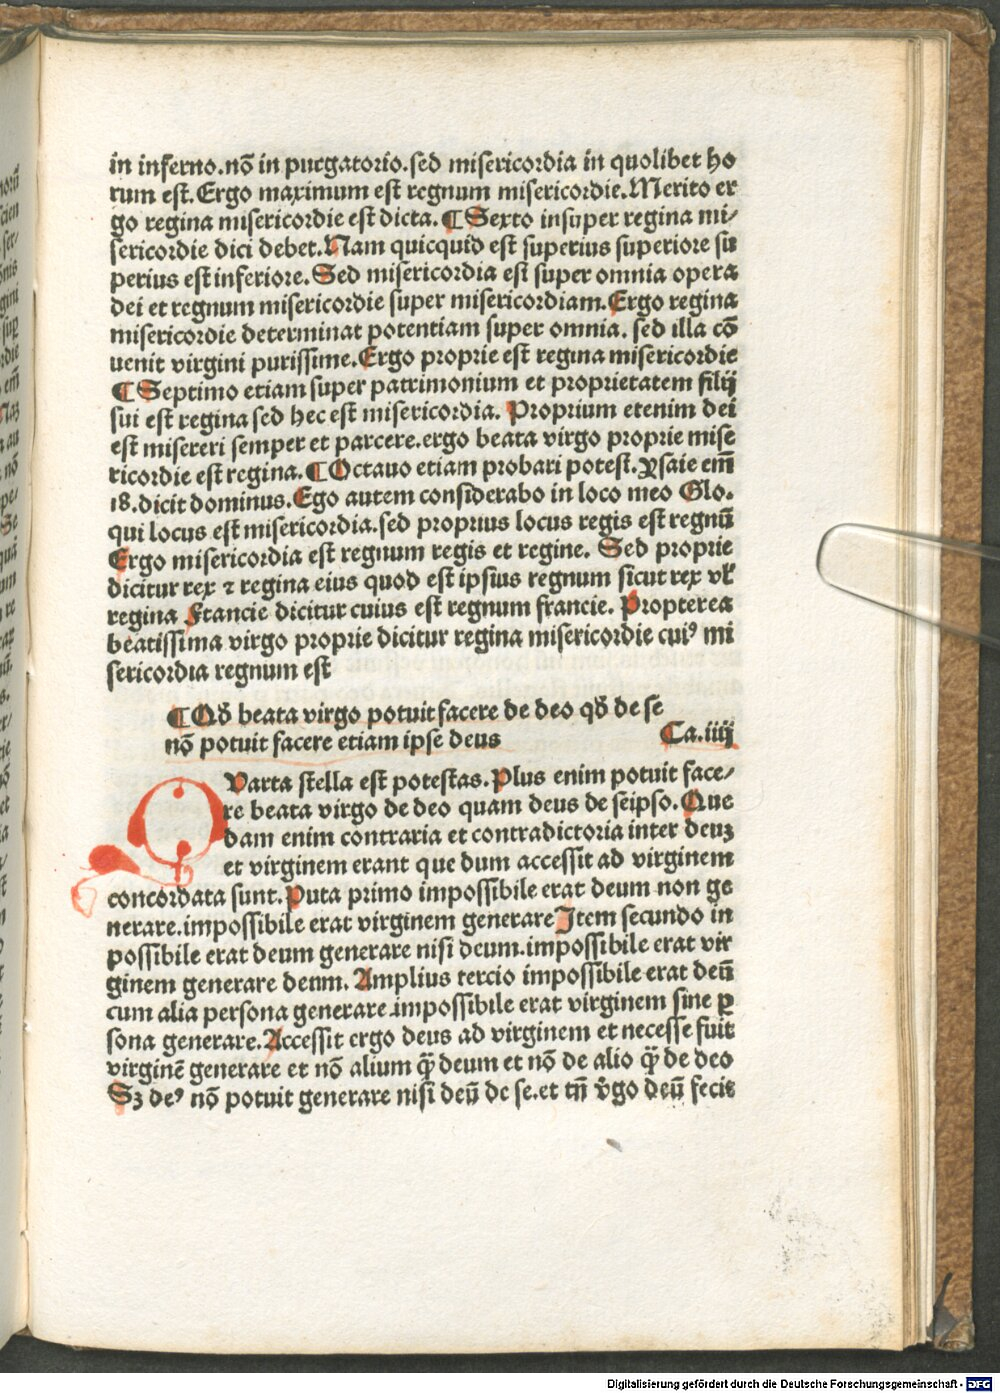 in inferno.nō in purgatorio.sed misericordia in quolibet ho
rum est.Ergo maximum est regnum misericordie.Merito er
go regina misericordie est dicta.¶Sexto insuper regina mi/
sericordie dici debet.Nam quicquid est superius superiore su
perius est inferiore.Sed misericordia est super omnia opera
dei et regnum misericordie super misericordiam.Ergo regina
misericordie determinat potentiam super omnia.sed illa cō
uenit virgini purissime.Ergo proprie est regina misericordie
¶Septimo etiam super patrimonium et proprietatem filij
sui est regina sed hec est misericordia. Proprium etenim dei
est misereri semper et parcere.ergo beata virgo proprie mise
ricordie est regina.¶Octauo etiam probari potest.Ysaie em̄
18.dicit dominus.Ego autem considerabo in loco meo Glo.
qui locus est misericordia.sed proprius locus regis est regnū
Ergo misericordia est regnum regis et regine. Sed proprie
dicitur rex ⁊ regina eius quod est ipsius regnum sicut rex vl̕
regina Francie dicitur cuius est regnum francie. Propterea
beatissima virgo proprie dicitur regina misericordie cuiꝰ mi
sericordia regnum est
¶Qđ beata virgo potuit facere de deo qđ de se
nō potuit facere etiam ipse deus Ca.iiij
QVarta stella est potestas.Plus enim potuit face/
re beata virgo de deo quam deus de seipso.Que
dam enim contraria et contradictoria inter deuꝫ
et virginem erant que dum accessit ad virginem
concordata sunt.Puta primo impossibile erat deum non ge
nerare.impossibile erat virginem generare Item secundo in
possibile erat deum generare nisi deum.impossibile erat vir
ginem generare denm. Amplius tercio impossibile erat deū
cum alia persona generare.impossibile erat virginem sine ꝑ
sona generare.Accessit ergo deus ad virginem et necesse fuit
virginē generare et nō alium q̄̄ deum et nō de alio q̄̄ de deo
Sꝫ deꝰ nō potuit generare nisi deū de se.et tn̄ v̕go deū fecit
Digitalisierung gefördert durch die Deutsche Forschungsgemeinschaft - DFG